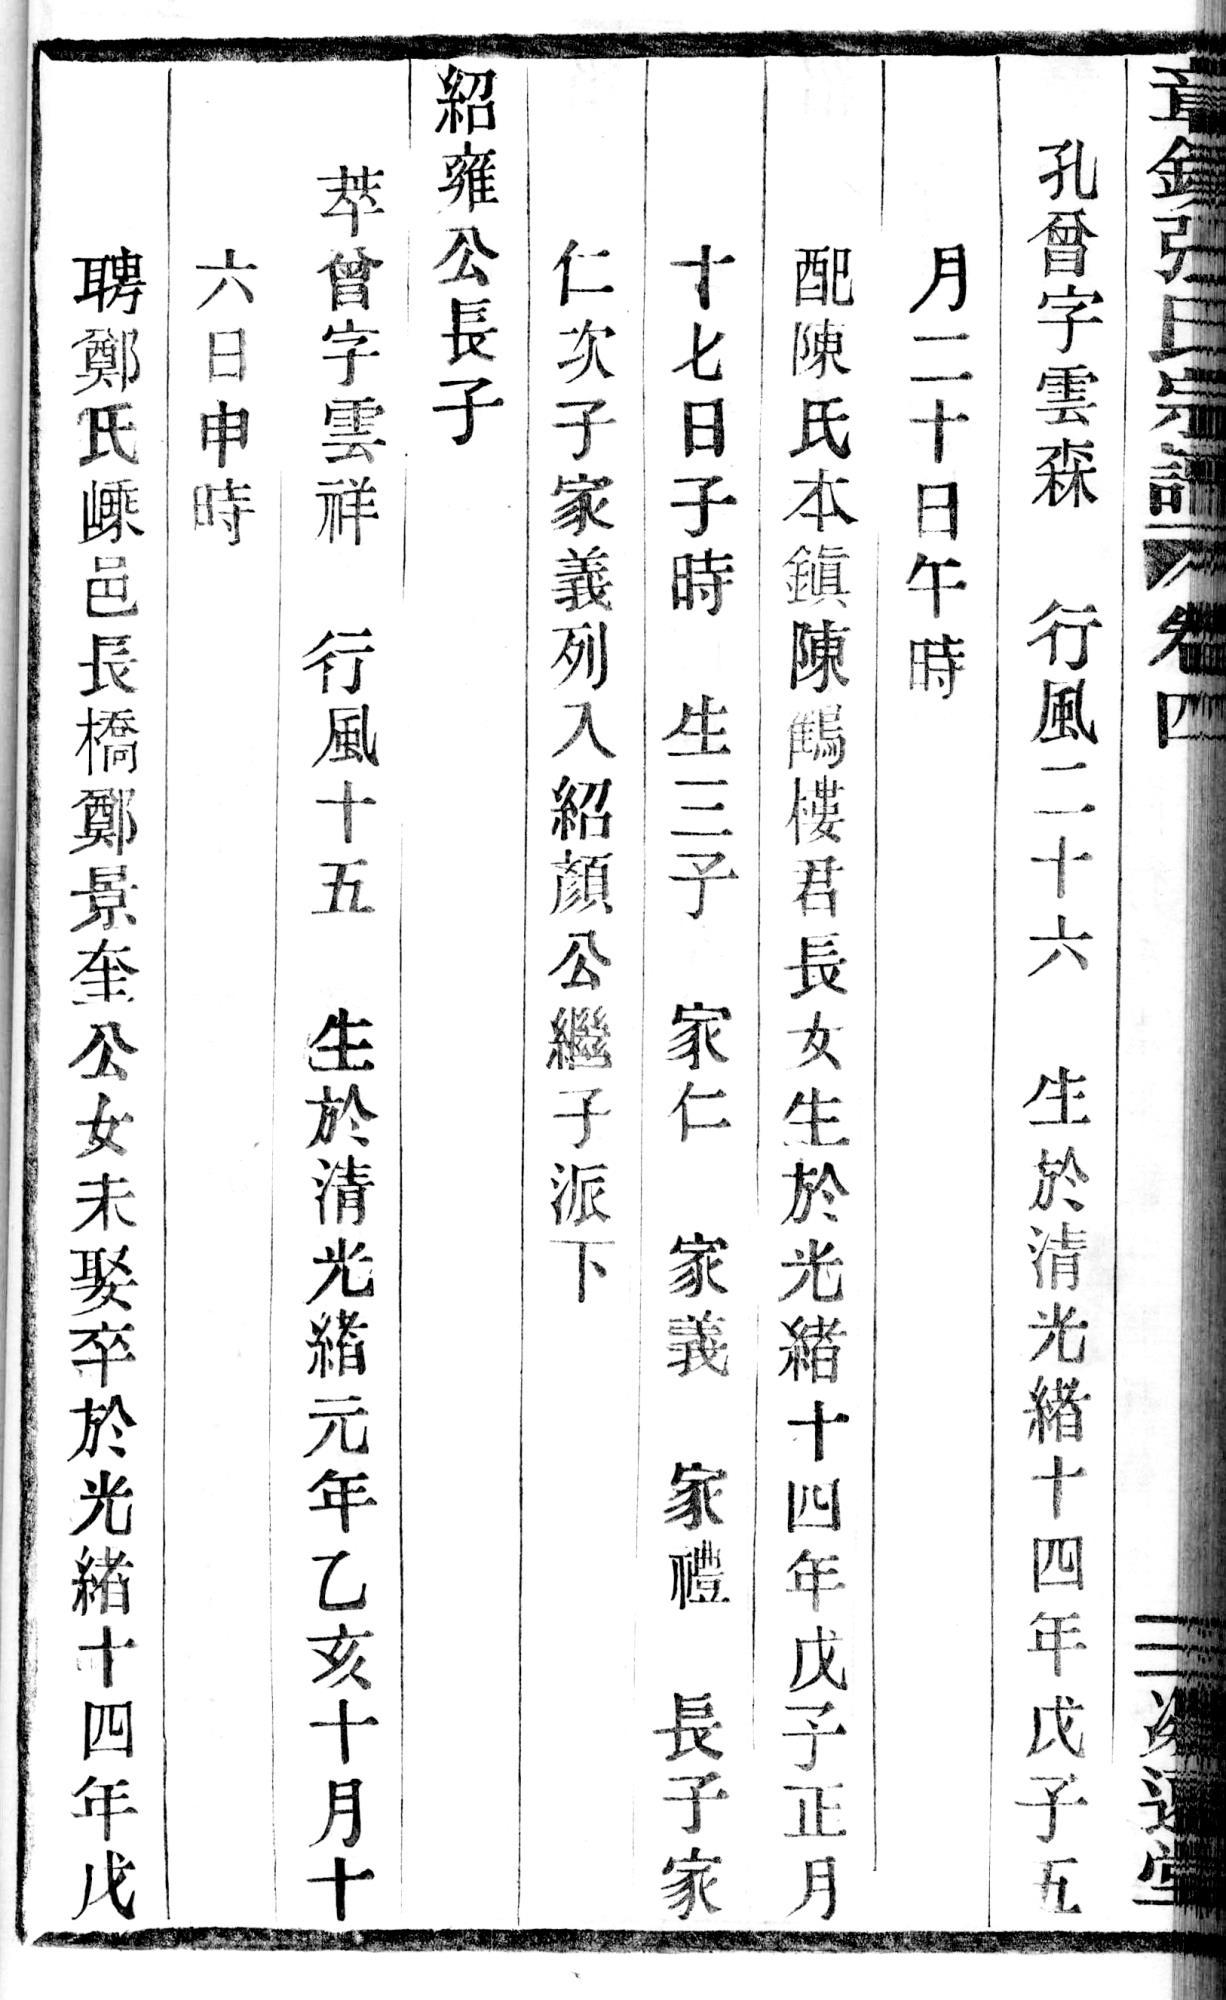 章鎮張氏宗譜 卷四
孔曾字雲森 行風二十六 生於清光緒十四年戊子五
月二十日午時
配陳氏本鎮陳鶴樓君長女生於光緒十四年戊子正月
十七日子時 生三子 家仁 家義 家禮 長子家
仁次子家義列入紹顏公繼子派下
紹雍公長子
萃曾字雲祥 行風十五 生於清光緒元年乙亥十月十
六日申時
聘鄭氏嵊邑長橋鄭景奎公女未娶卒於光緒十四年戊